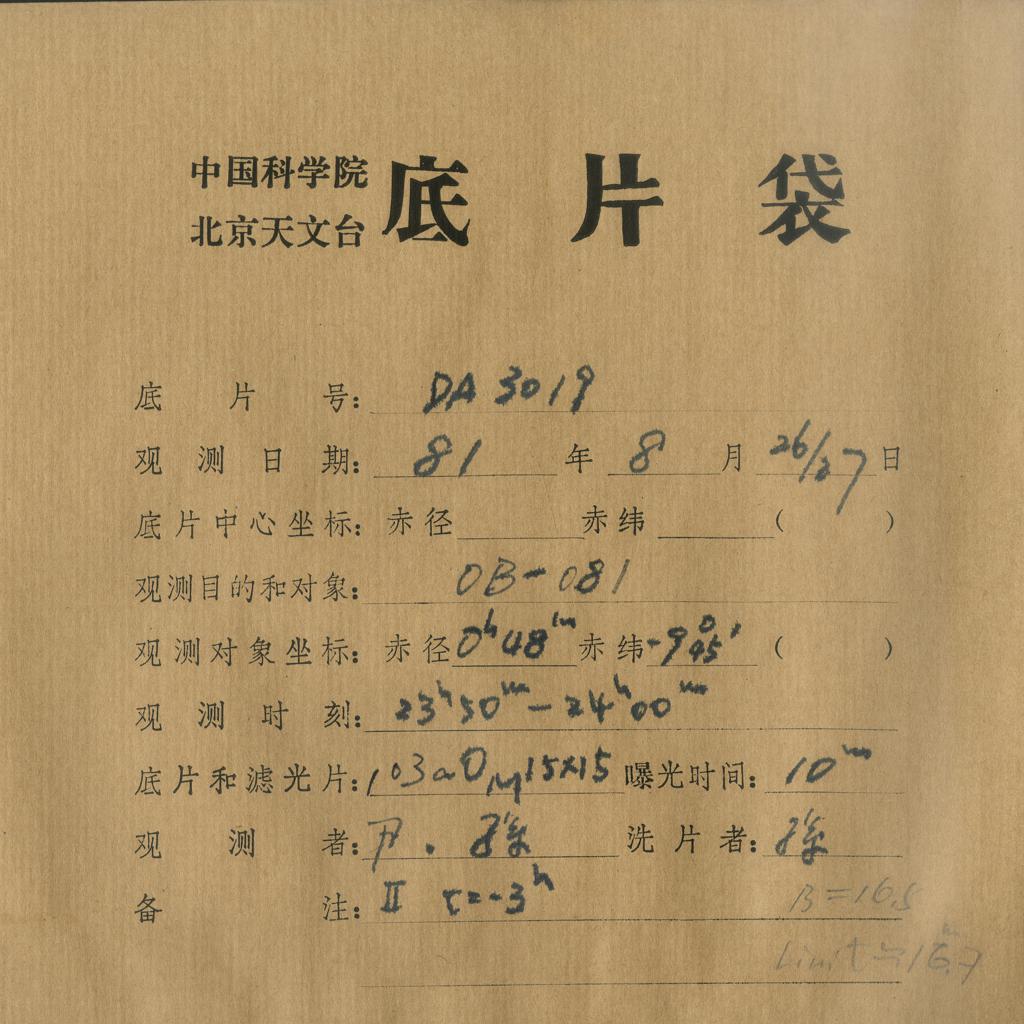 中国科学院
北京天文台
底片袋
底片号: DA 3019
观测日期: 81 年 8 月 26/27 日
底片中心坐标: 赤径 赤纬 ( )
观测目的和对象: OB-081
观测对象坐标: 赤径 0ʰ48ᵐ 赤纬 -9°45′ ( )
观测时刻: 23ʰ50ᵐ - 24ʰ00ᵐ
底片和滤光片: 103aO 15×15 曝光时间: 10ᵐ
观测者: 尹. 孙 洗片者: 孙
备注: II t=-3ʰ
B=16.5
Limit ≒ 16ᵐ.7